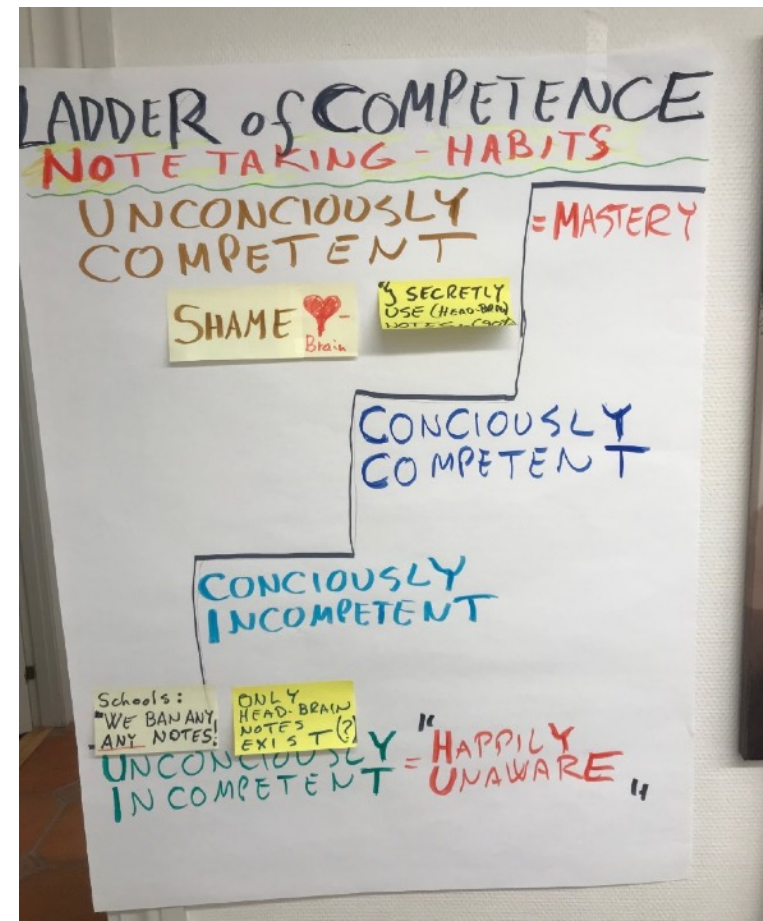 LADDER of COMPETENCE
NOTE TAKING - HABITS
UNCONCIOUSLY
COMPETENT
= MASTERY
SHAME
Brain
SECRETLY
USE (HEAD-BRAIN
CONCIOUSLY
COMPETENT
CONCIOUSLY
INCOMPETENT
Schools:
"WE BAN ANY
ANY NOTES!
ONLY
HEAD-BRAIN
NOTES
EXIST (?)
UNCONCIOUSLY
INCOMPETENT
= "HAPPILY
UNAWARE"